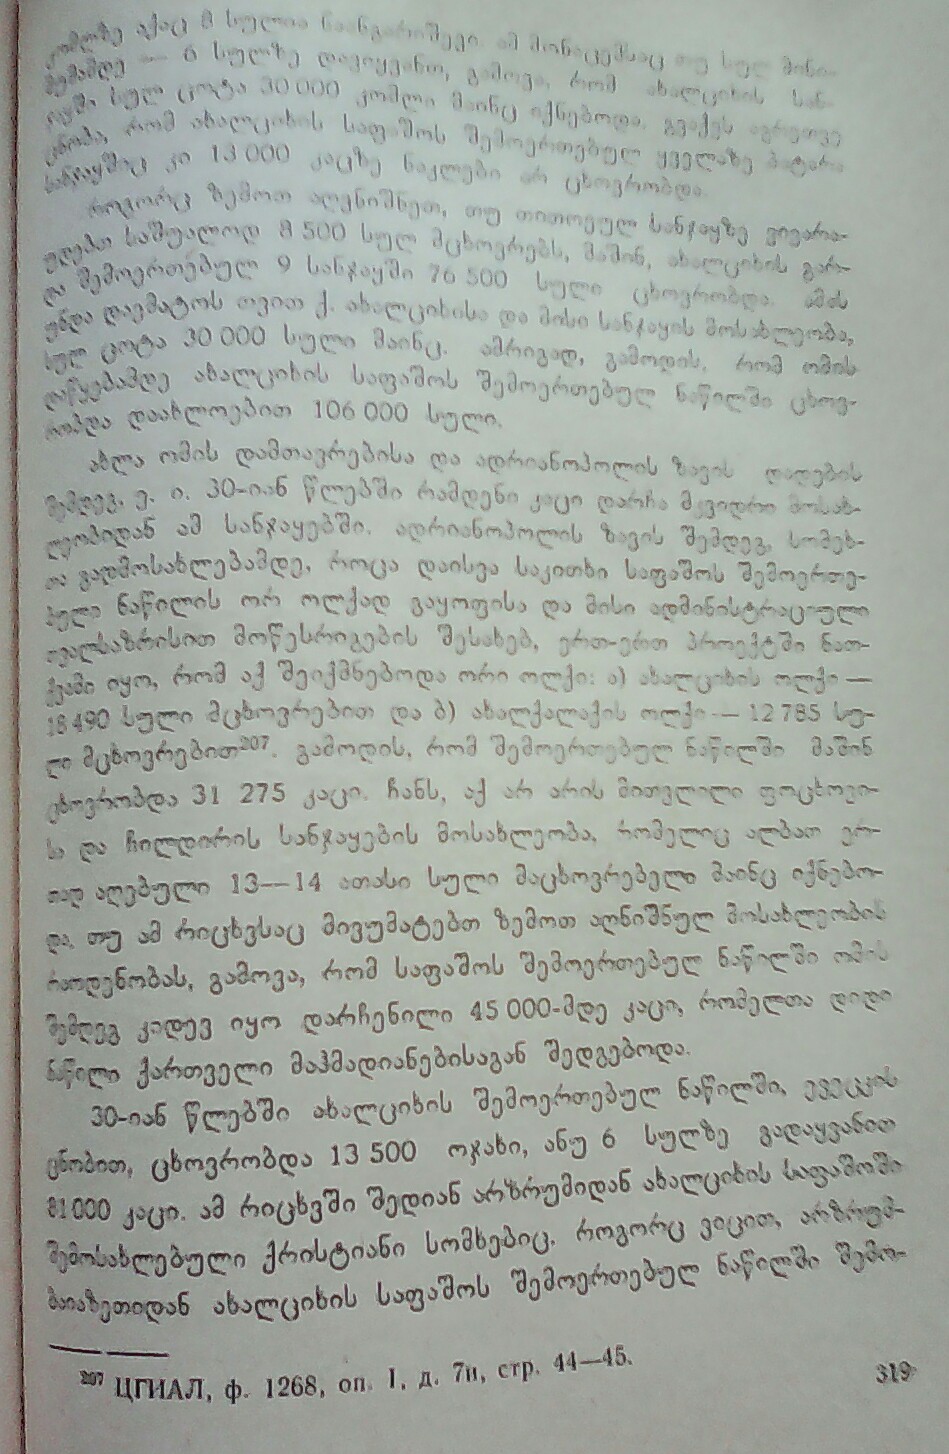 კომლზე აქაც 8 სულია ნაანგარიშევი. ამ მონაცემსაც თუ სულ მინი-
მუმამდე — 6 სულზე დავიყვანთ, გამოვა, რომ ახალციხის სან-
ჯაყში სულ ცოტა 30 000 კომლი მაინც იქნებოდა. გვაქვს აგრეთვე
ცნობა, რომ ახალციხის საფაშოს შემოერთებულ ყველაზე პატარა
სანჯაყშიც კი 13 000 კაცზე ნაკლები არ ცხოვრობდა.
როგორც ზემოთ აღვნიშნეთ, თუ თითოეულ სანჯაყზე ვივარა-
უდებთ საშუალოდ 8 500 სულ მცხოვრებს, მაშინ, ახალციხის გარ-
და შემოერთებულ 9 სანჯაყში 76 500 სული ცხოვრობდა. ამას
უნდა დაემატოს თვით ქ. ახალციხისა და მისი სანჯაყის მოსახლეობა,
სულ ცოტა 30 000 სული მაინც. ამრიგად, გამოდის, რომ ომის
დაწყებამდე ახალციხის საფაშოს შემოერთებულ ნაწილში ცხოვ-
რობდა დაახლოებით 106 000 სული.
ახლა ომის დამთავრებისა და ადრიანოპოლის ზავის დადების
შემდეგ, ე. ი. 30-იან წლებში რამდენი კაცი დარჩა მკვიდრი მოსახ-
ლეობიდან ამ სანჯაყებში. ადრიანოპოლის ზავის შემდეგ, სომეხ-
თა გადმოსახლებამდე, როცა დაისვა საკითხი საფაშოს შემოერთე-
ბული ნაწილის ორ ოლქად გაყოფისა და მისი ადმინისტრაციული
თვალსაზრისით მოწესრიგების შესახებ, ერთ-ერთ პროექტში ნათ-
ქვამი იყო, რომ აქ შეიქმნებოდა ორი ოლქი: ა) ახალციხის ოლქი —
18 490 სული მცხოვრებით და ბ) ახალქალაქის ოლქი — 12 785 სუ-
ლი მცხოვრებით²⁰⁷. გამოდის, რომ შემოერთებულ ნაწილში მაშინ
ცხოვრობდა 31 275 კაცი. ჩანს, აქ არ არის მითვლილი ფოცხოვი-
სა და ჩილდირის სანჯაყების მოსახლეობა, რომელიც ალბათ ერ-
თად აღებული 13—14 ათასი სული მაცხოვრებელი მაინც იქნებო-
და. თუ ამ რიცხვსაც მივუმატებთ ზემოთ აღნიშნულ მოსახლეობის
რაოდენობას, გამოვა, რომ საფაშოს შემოერთებულ ნაწილში ომის
შემდეგ კიდევ იყო დარჩენილი 45 000-მდე კაცი, რომელთა დიდი
ნაწილი ქართველი მაჰმადიანებისაგან შედგებოდა.
30-იან წლებში ახალციხის შემოერთებულ ნაწილში, ევეცკის
ცნობით, ცხოვრობდა 13 500 ოჯახი, ანუ 6 სულზე გადაყვანით
81 000 კაცი. ამ რიცხვში შედიან არზრუმიდან ახალციხის საფაშოში
შემოსახლებული ქრისტიანი სომხებიც. როგორც ვიცით, არზრუმ-
ბაიაზეთიდან ახალციხის საფაშოს შემოერთებულ ნაწილში შემო-
²⁰⁷ ЦГИАЛ, ф. 1268, оп. I, д. 7п, стр. 44—45.
319